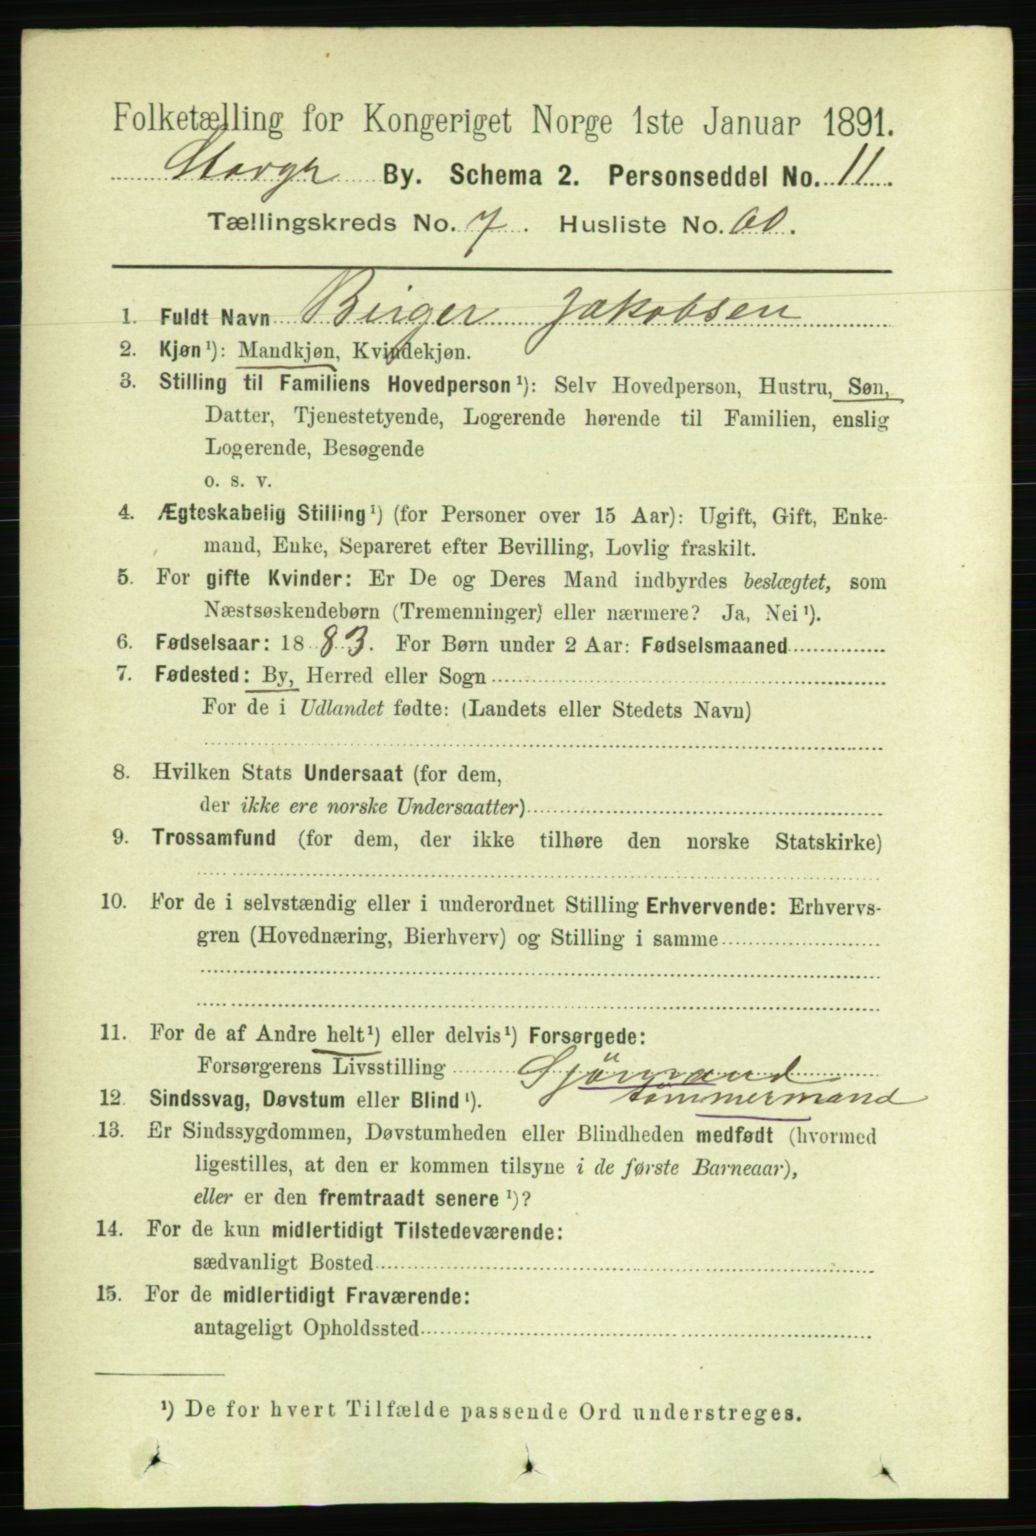 Folketælling for Kongeriget Norge 1ste Januar 1891.
By. Schema 2. Personseddel No. 11.
Tællingskreds No. 7. Husliste No. 60.
1. Fuldt Navn Birger Jakobsen
2. Kjøn¹): Mandkjøn, Kvindekjøn.
3. Stilling til Familiens Hovedperson¹): Selv Hovedperson, Hustru, Søn,
Datter, Tjenestetyende, Logerende hørende til Familien, enslig
Logerende, Besøgende
o. s. v.
4. Ægteskabelig Stilling¹) (for Personer over 15 Aar): Ugift, Gift, Enke-
mand, Enke, Separeret efter Bevilling, Lovlig fraskilt.
5. For gifte Kvinder: Er De og Deres Mand indbyrdes beslægtet, som
Næstsøskendebørn (Tremenninger) eller nærmere? Ja, Nei¹).
6. Fødselsaar: 1883. For Børn under 2 Aar: Fødselsmaaned
7. Fødested: By, Herred eller Sogn
For de i Udlandet fødte: (Landets eller Stedets Navn)
8. Hvilken Stats Undersaat (for dem,
der ikke ere norske Undersaatter)
9. Trossamfund (for dem, der ikke tilhøre den norske Statskirke)
10. For de i selvstændig eller i underordnet Stilling Erhvervende: Erhvervs-
gren (Hovednæring, Bierhverv) og Stilling i samme
11. For de af Andre helt¹) eller delvis¹) Forsørgede:
Forsørgerens Livsstilling Sjömand
tømmermand
12. Sindssvag, Døvstum eller Blind¹).
13. Er Sindssygdommen, Døvstumheden eller Blindheden medfødt (hvormed
ligestilles, at den er kommen tilsyne i de første Barneaar),
eller er den fremtraadt senere¹)?
14. For de kun midlertidigt Tilstedeværende:
sædvanligt Bosted
15. For de midlertidigt Fraværende:
antageligt Opholdssted
¹) De for hvert Tilfælde passende Ord understreges.